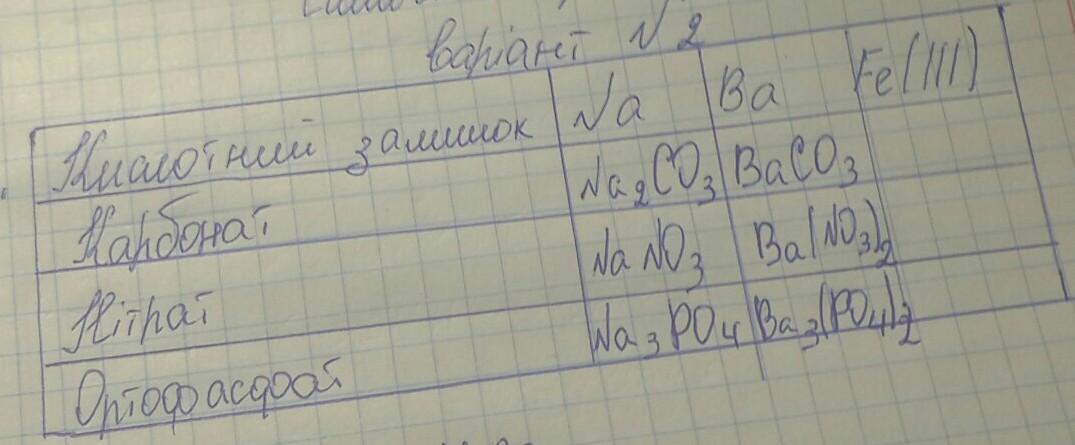 Варіант №2
Кислотний залишок Na Ba Fe(III)
Карбонат Na₂CO₃ BaCO₃
Нітрат NaNO₃ Ba(NO₃)₂
Ортофосфат Na₃PO₄ Ba₃(PO₄)₂